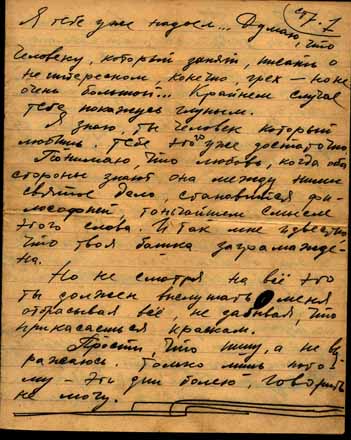 стр. 1
Я тебе уже надоел... Думаю, что
человеку, который занят, писать о
не интересном, конечно, грех — но не
очень большой... Крайнем случае
тебе покажусь глупым.
Я знаю, ты человек который
любишь. Тебе это уже достаточно
Понимаю, что любовь, когда оба
стороны знают она между ними
святое дело, становится фи-
лософий, тончайшем смысле
этого слова. И так мне известно,
что твоя башка заграмажде-
на.
Но не смотря на всё это
ты должен выслушать меня
отбрасывая всё, не забывая, что
прикасаешься краскам.
Прости, что пишу, а не вы-
ражаюсь. Только лишь пото
му — эти дни болею, говорить
не могу.